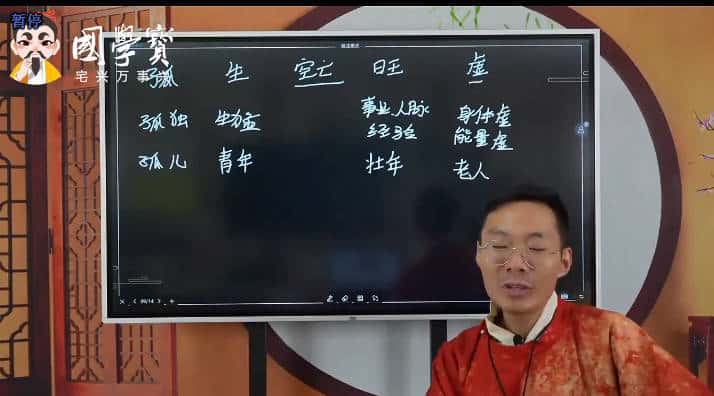 暂停
國學寶
宅兴万事兴
孤 生 空亡 旺 虚
孤独 生力 事业人脉 身体虚
经验 能量虚
孤儿 青年 壮年 老人